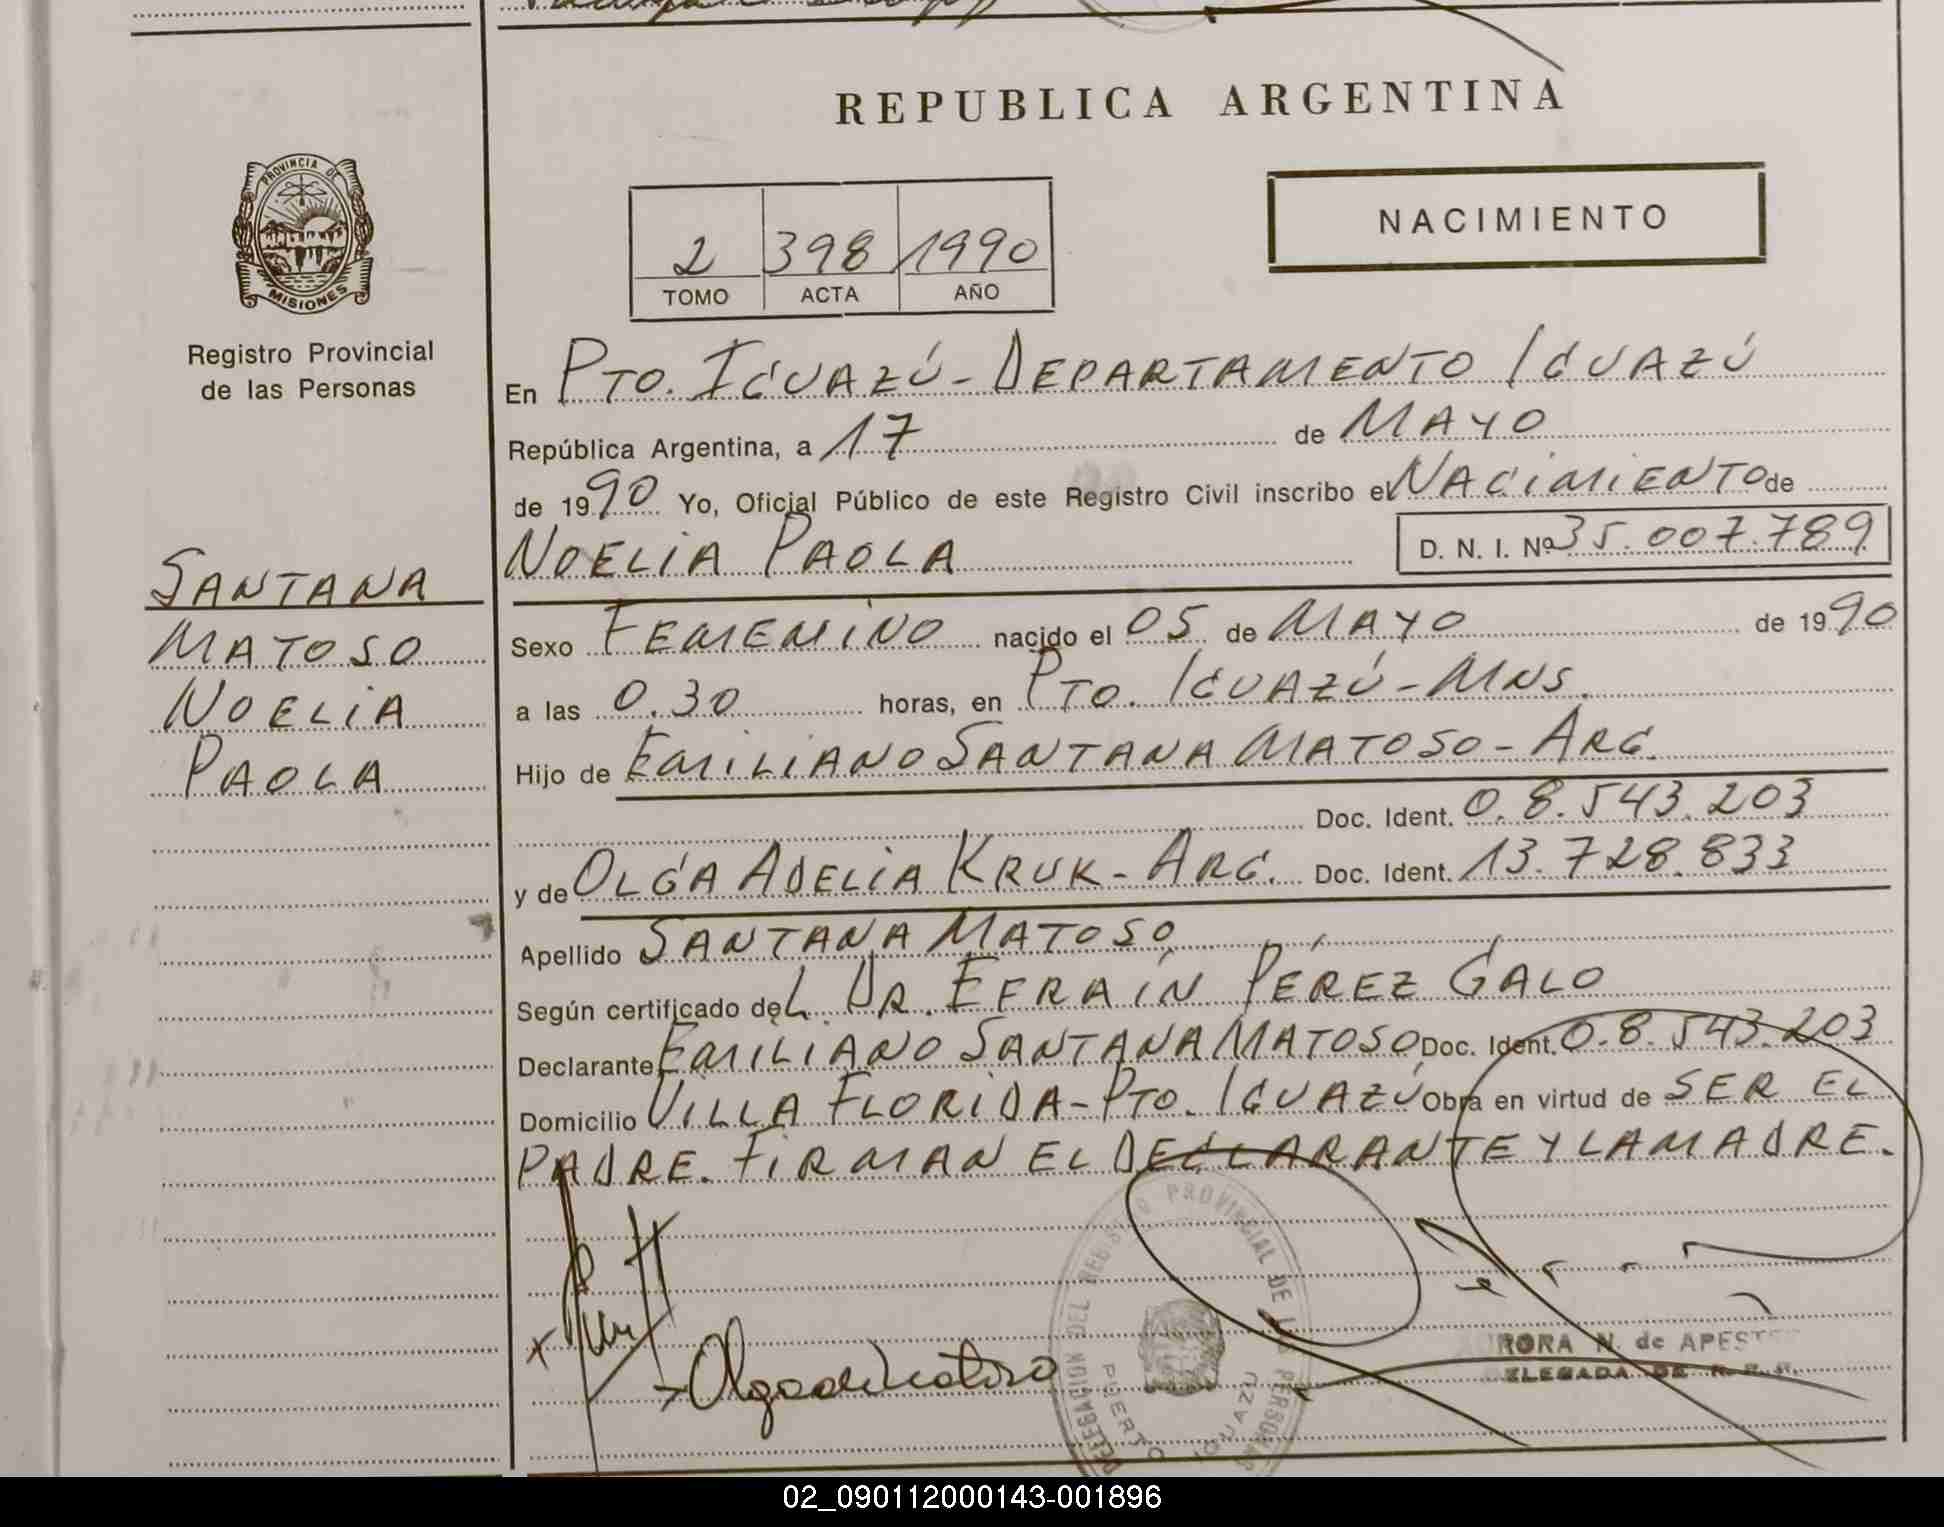 REPUBLICA ARGENTINA
PROVINCIA DE
MISIONES
Registro Provincial
de las Personas
2 398 1990
TOMO ACTA AÑO
NACIMIENTO
En PTO. IGUAZÚ - DEPARTAMENTO IGUAZÚ
República Argentina, a 17 de MAYO
de 1990 Yo, Oficial Público de este Registro Civil inscribo el NACIMIENTO de
NOELIA PAOLA D. N. I. Nº 35.007.789
SANTANA
MATOSO
NOELIA
PAOLA
Sexo FEMENINO nacido el 05 de MAYO de 1990
a las 0.30 horas, en PTO. IGUAZÚ - MNS.
Hijo de EMILIANO SANTANA MATOSO - ARG.
Doc. Ident. 0.8.543.203
y de OLGA ADELIA KRUK - ARG. Doc. Ident. 13.728.833
Apellido SANTANA MATOSO
Según certificado del DR. EFRAÍN PÉREZ GALO
Declarante EMILIANO SANTANA MATOSO Doc. Ident. 0.8.543.203
Domicilio VILLA FLORIDA - PTO. IGUAZÚ Obra en virtud de SER EL
PADRE. FIRMAN EL DECLARANTE Y LA MADRE.
DELEGACION DEL REGISTRO PROVINCIAL DE LAS PERSONAS
PUERTO IGUAZU
RORA N. de APEST
DELEGADA DE R. P. P.
02_090112000143-001896